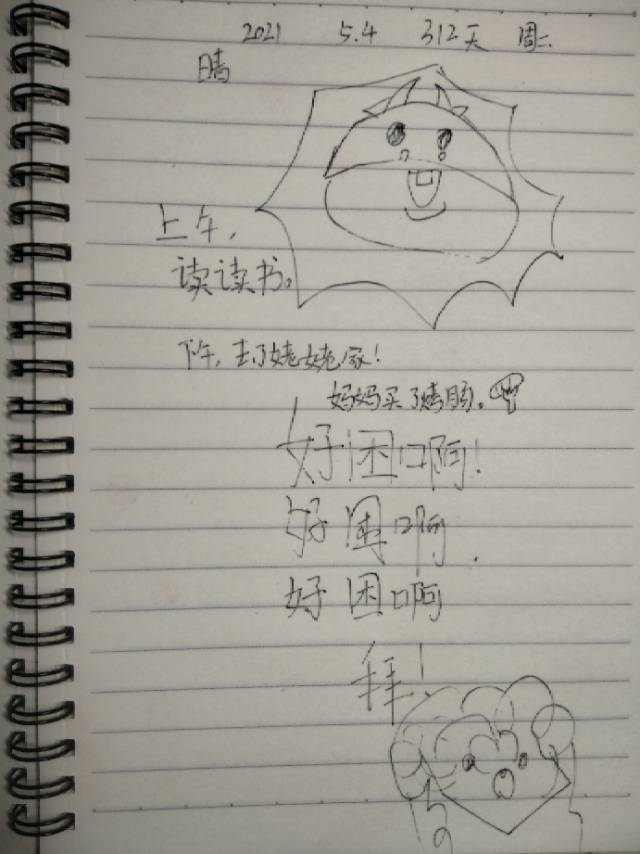 2021 5.4 312天 周二
晴
上午，
读读书。
下午，去了姥姥家！
妈妈买了烤肠。
好困啊！
好困啊.
好困啊
拜！